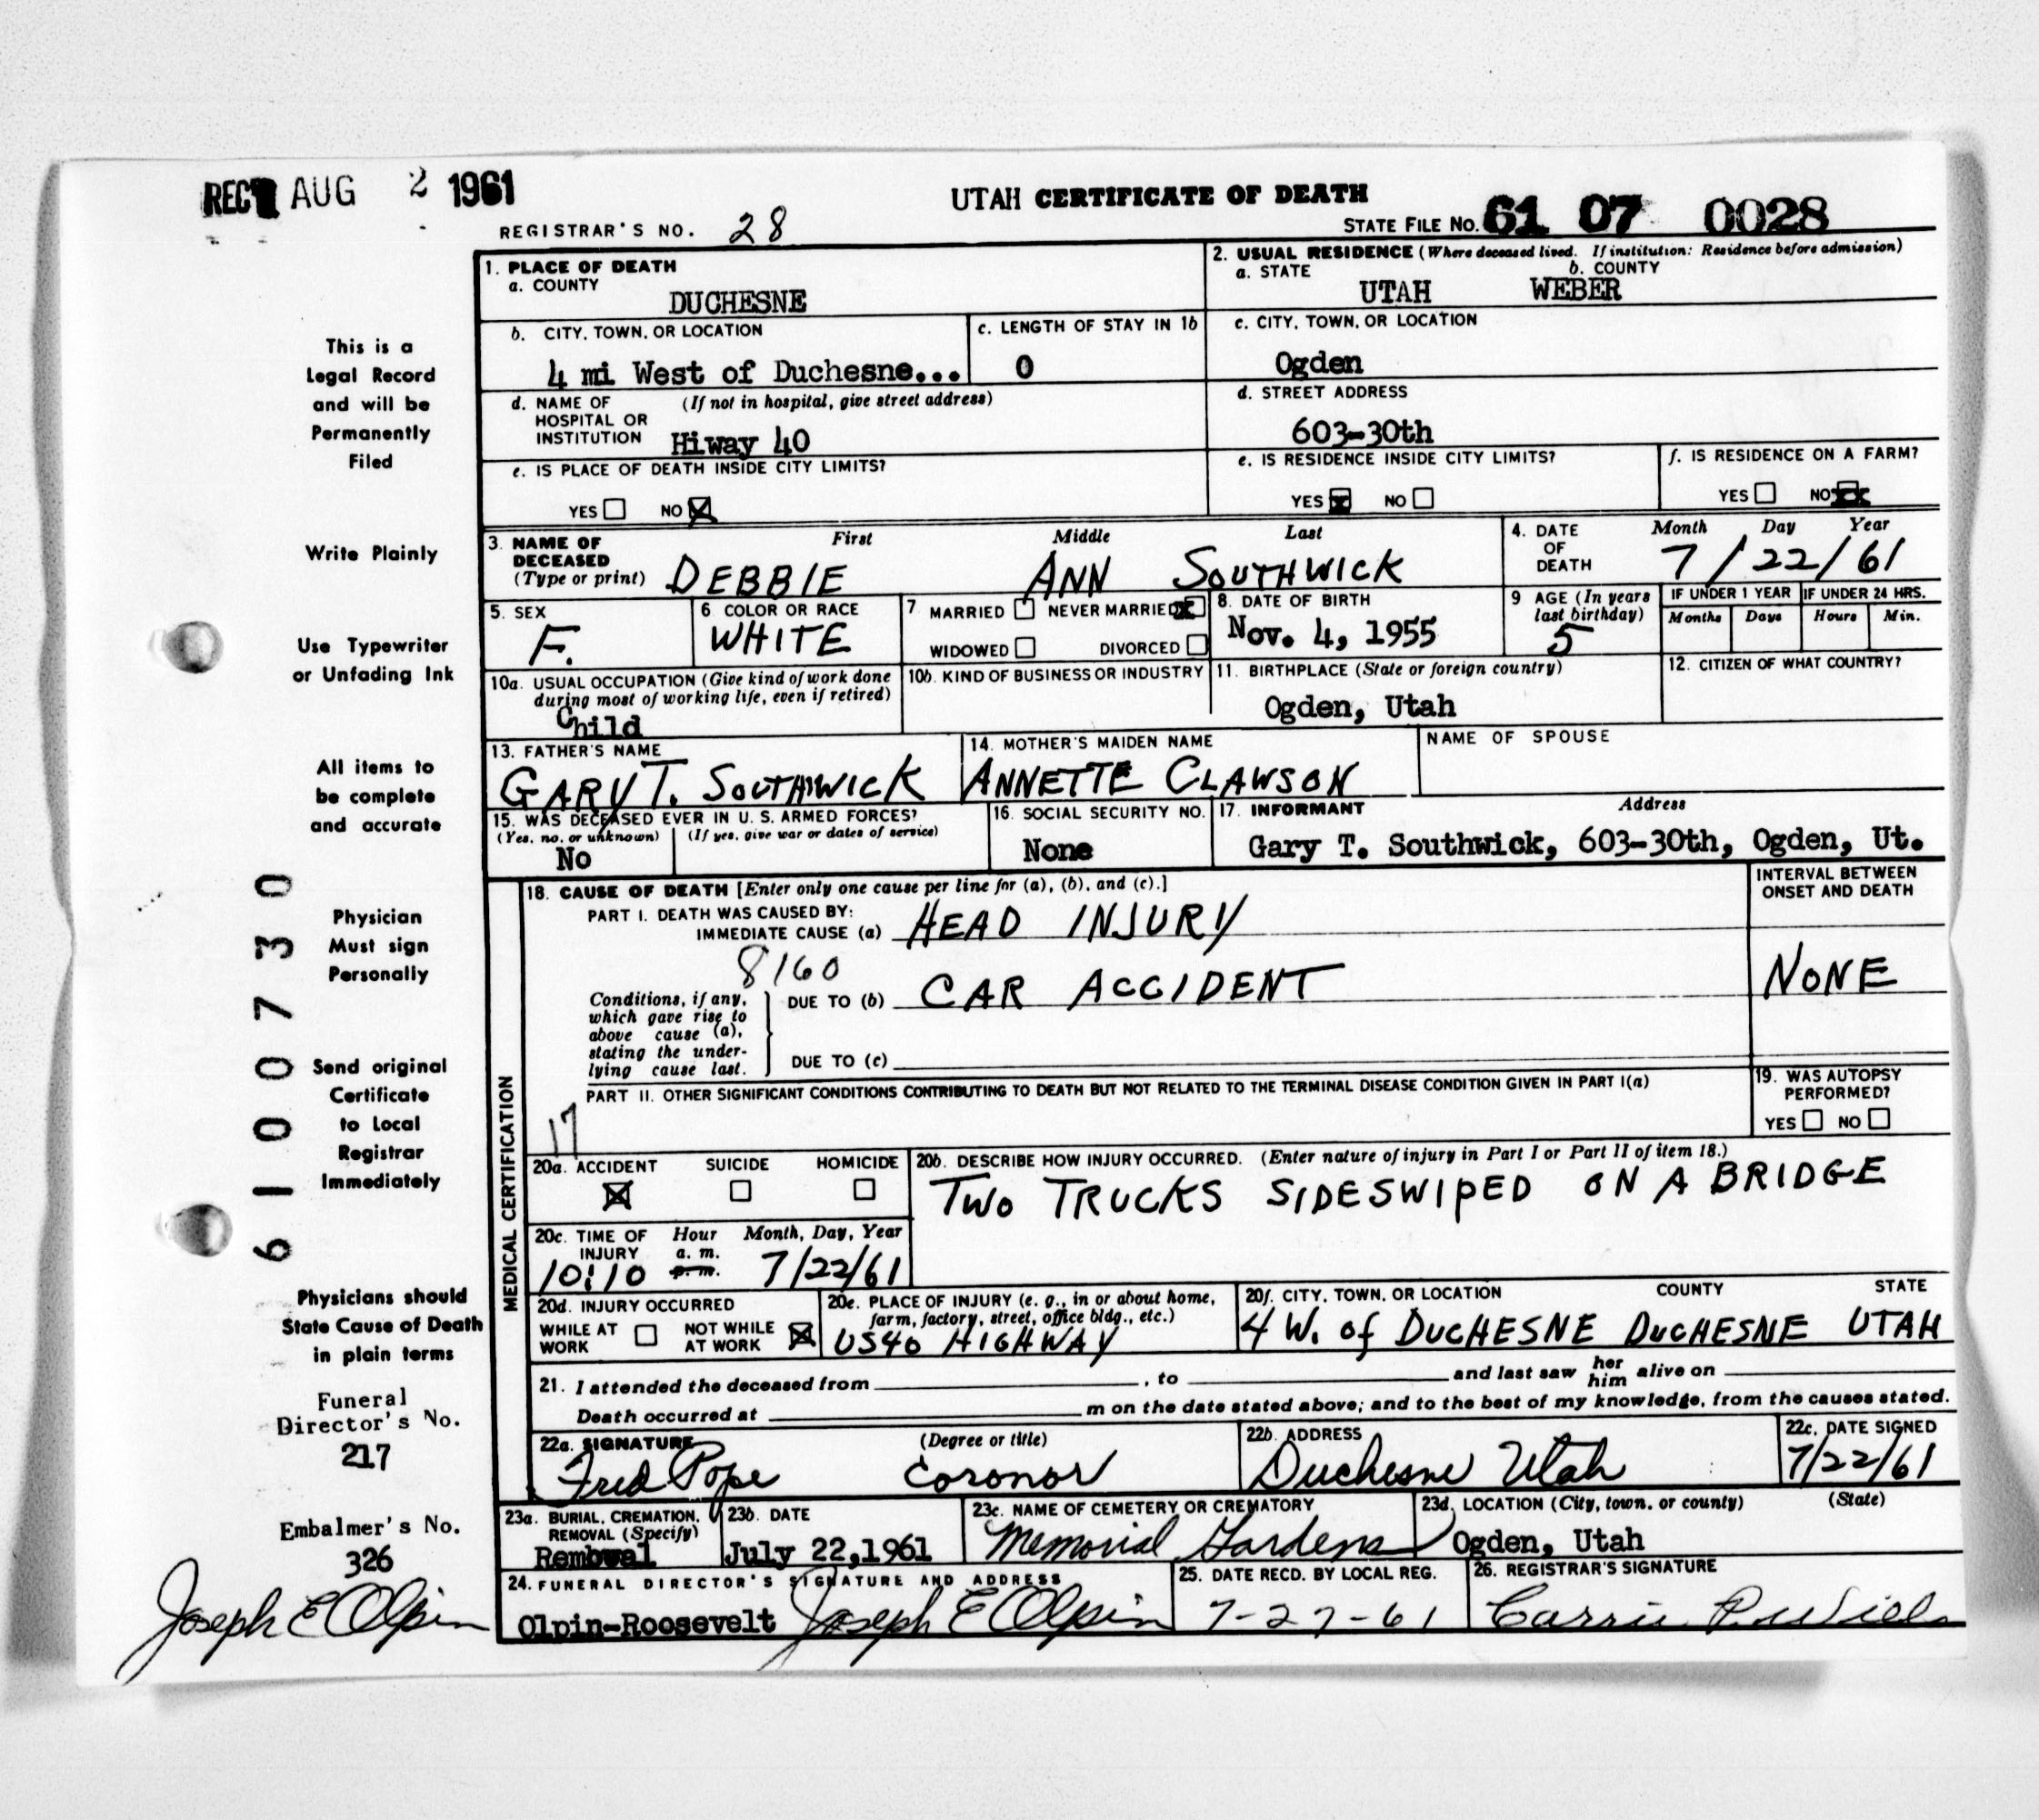 REC'D AUG 2 1961
UTAH CERTIFICATE OF DEATH
REGISTRAR'S NO. 28
STATE FILE NO. 61 07 0028
This is a
Legal Record
and will be
Permanently
Filed
Write Plainly
Use Typewriter
or Unfading Ink
All items to
be complete
and accurate
Physician
Must sign
Personally
Send original
Certificate
to Local
Registrar
Immediately
Physicians should
State Cause of Death
in plain terms
Funeral
Director's No.
217
Embalmer's No.
326
Joseph E Olpin
61007730
1. PLACE OF DEATH
a. COUNTY
DUCHESNE
b. CITY, TOWN, OR LOCATION
4 mi West of Duchesne...
c. LENGTH OF STAY IN 1b
0
d. NAME OF (If not in hospital, give street address)
HOSPITAL OR
INSTITUTION Hiway 40
e. IS PLACE OF DEATH INSIDE CITY LIMITS?
YES NO X
2. USUAL RESIDENCE (Where deceased lived. If institution: Residence before admission)
a. STATE b. COUNTY
UTAH WEBER
c. CITY, TOWN, OR LOCATION
Ogden
d. STREET ADDRESS
603-30th
e. IS RESIDENCE INSIDE CITY LIMITS?
YES X NO
f. IS RESIDENCE ON A FARM?
YES NO XX
3. NAME OF First Middle Last
DECEASED
(Type or print) DEBBIE ANN SOUTHWICK
4. DATE Month Day Year
OF
DEATH 7/22/61
5. SEX
F.
6 COLOR OR RACE
WHITE
7 MARRIED NEVER MARRIED X
WIDOWED DIVORCED
8. DATE OF BIRTH
Nov. 4, 1955
9 AGE (In years
last birthday)
5
IF UNDER 1 YEAR IF UNDER 24 HRS.
Months Days Hours Min.
10a. USUAL OCCUPATION (Give kind of work done
during most of working life, even if retired)
Child
10b. KIND OF BUSINESS OR INDUSTRY
11. BIRTHPLACE (State or foreign country)
Ogden, Utah
12. CITIZEN OF WHAT COUNTRY?
13. FATHER'S NAME
GARY T. SOUTHWICK
14. MOTHER'S MAIDEN NAME
ANNETTE CLAWSON
NAME OF SPOUSE
15. WAS DECEASED EVER IN U. S. ARMED FORCES?
(Yes, no, or unknown) (If yes, give war or dates of service)
No
16. SOCIAL SECURITY NO.
None
17. INFORMANT Address
Gary T. Southwick, 603-30th, Ogden, Ut.
MEDICAL CERTIFICATION
18. CAUSE OF DEATH [Enter only one cause per line for (a), (b), and (c).]
PART I. DEATH WAS CAUSED BY:
IMMEDIATE CAUSE (a) HEAD INJURY
8160
Conditions, if any,
which gave rise to
above cause (a),
stating the under-
lying cause last.
DUE TO (b) CAR ACCIDENT
DUE TO (c)
INTERVAL BETWEEN
ONSET AND DEATH
NONE
PART II. OTHER SIGNIFICANT CONDITIONS CONTRIBUTING TO DEATH BUT NOT RELATED TO THE TERMINAL DISEASE CONDITION GIVEN IN PART I(a)
17
19. WAS AUTOPSY
PERFORMED?
YES NO
20a. ACCIDENT SUICIDE HOMICIDE
X
20b. DESCRIBE HOW INJURY OCCURRED. (Enter nature of injury in Part I or Part II of item 18.)
TWO TRUCKS SIDESWIPED ON A BRIDGE
20c. TIME OF Hour Month, Day, Year
INJURY a. m.
10:10 p. m. 7/22/61
20d. INJURY OCCURRED
WHILE AT NOT WHILE
WORK AT WORK X
20e. PLACE OF INJURY (e. g., in or about home,
farm, factory, street, office bldg., etc.)
US40 HIGHWAY
20f. CITY, TOWN, OR LOCATION COUNTY STATE
4 W. of DUCHESNE DUCHESNE UTAH
21. I attended the deceased from , to and last saw her him alive on
Death occurred at m on the date stated above; and to the best of my knowledge, from the causes stated.
22a. SIGNATURE (Degree or title)
Fred Pope Coronor
22b. ADDRESS
Duchesne Utah
22c. DATE SIGNED
7/22/61
23a. BURIAL, CREMATION,
REMOVAL (Specify)
Removal
23b. DATE
July 22,1961
23c. NAME OF CEMETERY OR CREMATORY
Memorial Gardens
23d. LOCATION (City, town, or county) (State)
Ogden, Utah
24. FUNERAL DIRECTOR'S SIGNATURE AND ADDRESS
Olpin-Roosevelt Joseph E Olpin
25. DATE RECD. BY LOCAL REG.
7-27-61
26. REGISTRAR'S SIGNATURE
Carrie P.